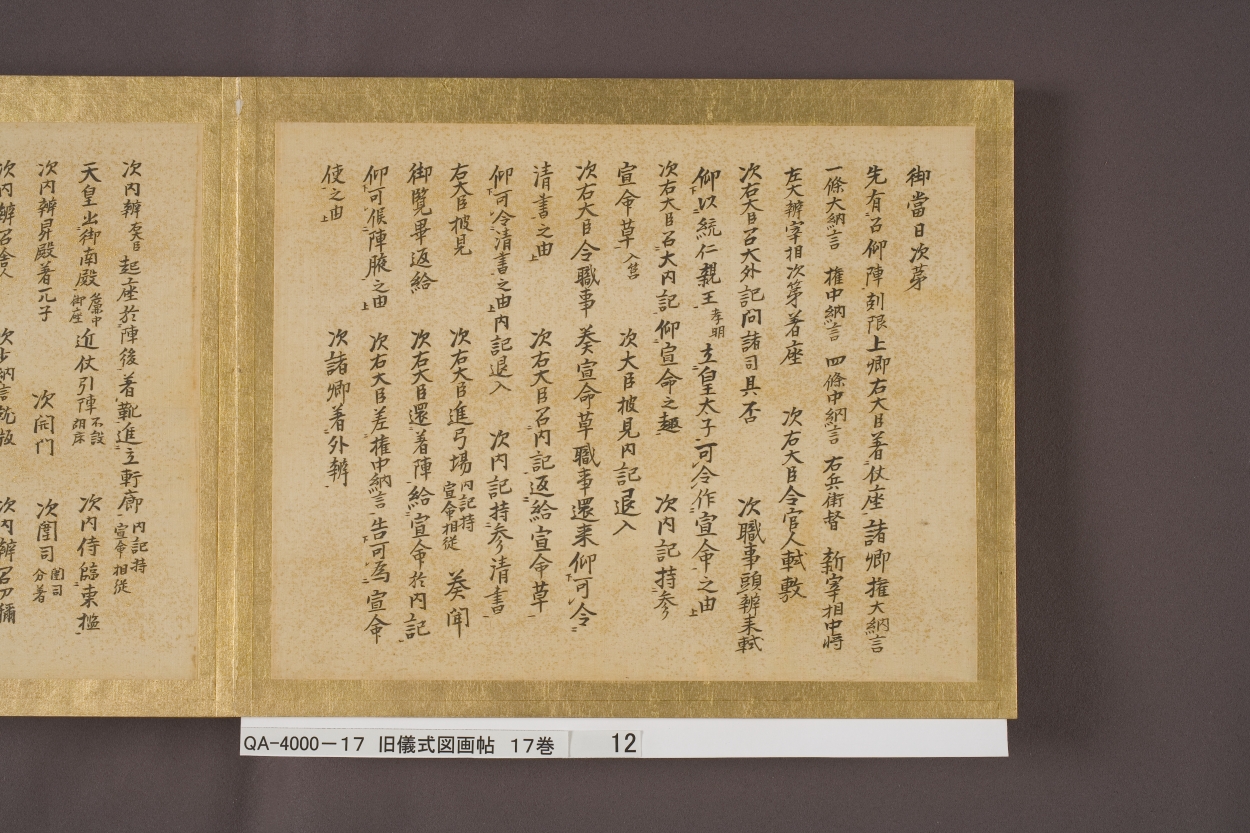 御當日次第
先有召仰陣剋限上卿右大臣著仗座諸卿権大納言
一條大納言 権中納言 四條中納言 右兵衛督 新宰相中将
左大辨宰相次第著座 次右大臣令官人軾敷
次右大臣召大外記問諸司具否 次職事頭辨来軾
仰以統仁親王孝明立皇太子可令作宣命之由
次右大臣召大内記仰宣命之趣 次内記持参
宣命草入筥 次大臣披見内記退入
次右大臣令職事奏宣命草職事還来仰可令
清書之由 次右大臣召内記返給宣命草
仰可令清書之由内記退入 次内記持参清書
右大臣披見 次右大臣進弓場内記持宣命相従 奏聞
御覧畢返給 次右大臣還著陣給宣命於内記
仰可候陣腋之由 次右大臣差権中納言告可為宣命
使之由 次諸卿著外辨
次内辨右大臣起座於陣後著靴進立軒廊内記持宣命相従
天皇出御南殿簾中御座近仗引陣不設胡床 次内侍臨東檻
次内辨昇殿著兀子 次開門 次闈司闈司分著
次内辨召舎人 次少納言就版 次内辨召刀禰
QA-4000-17 旧儀式図画帖 17巻 12